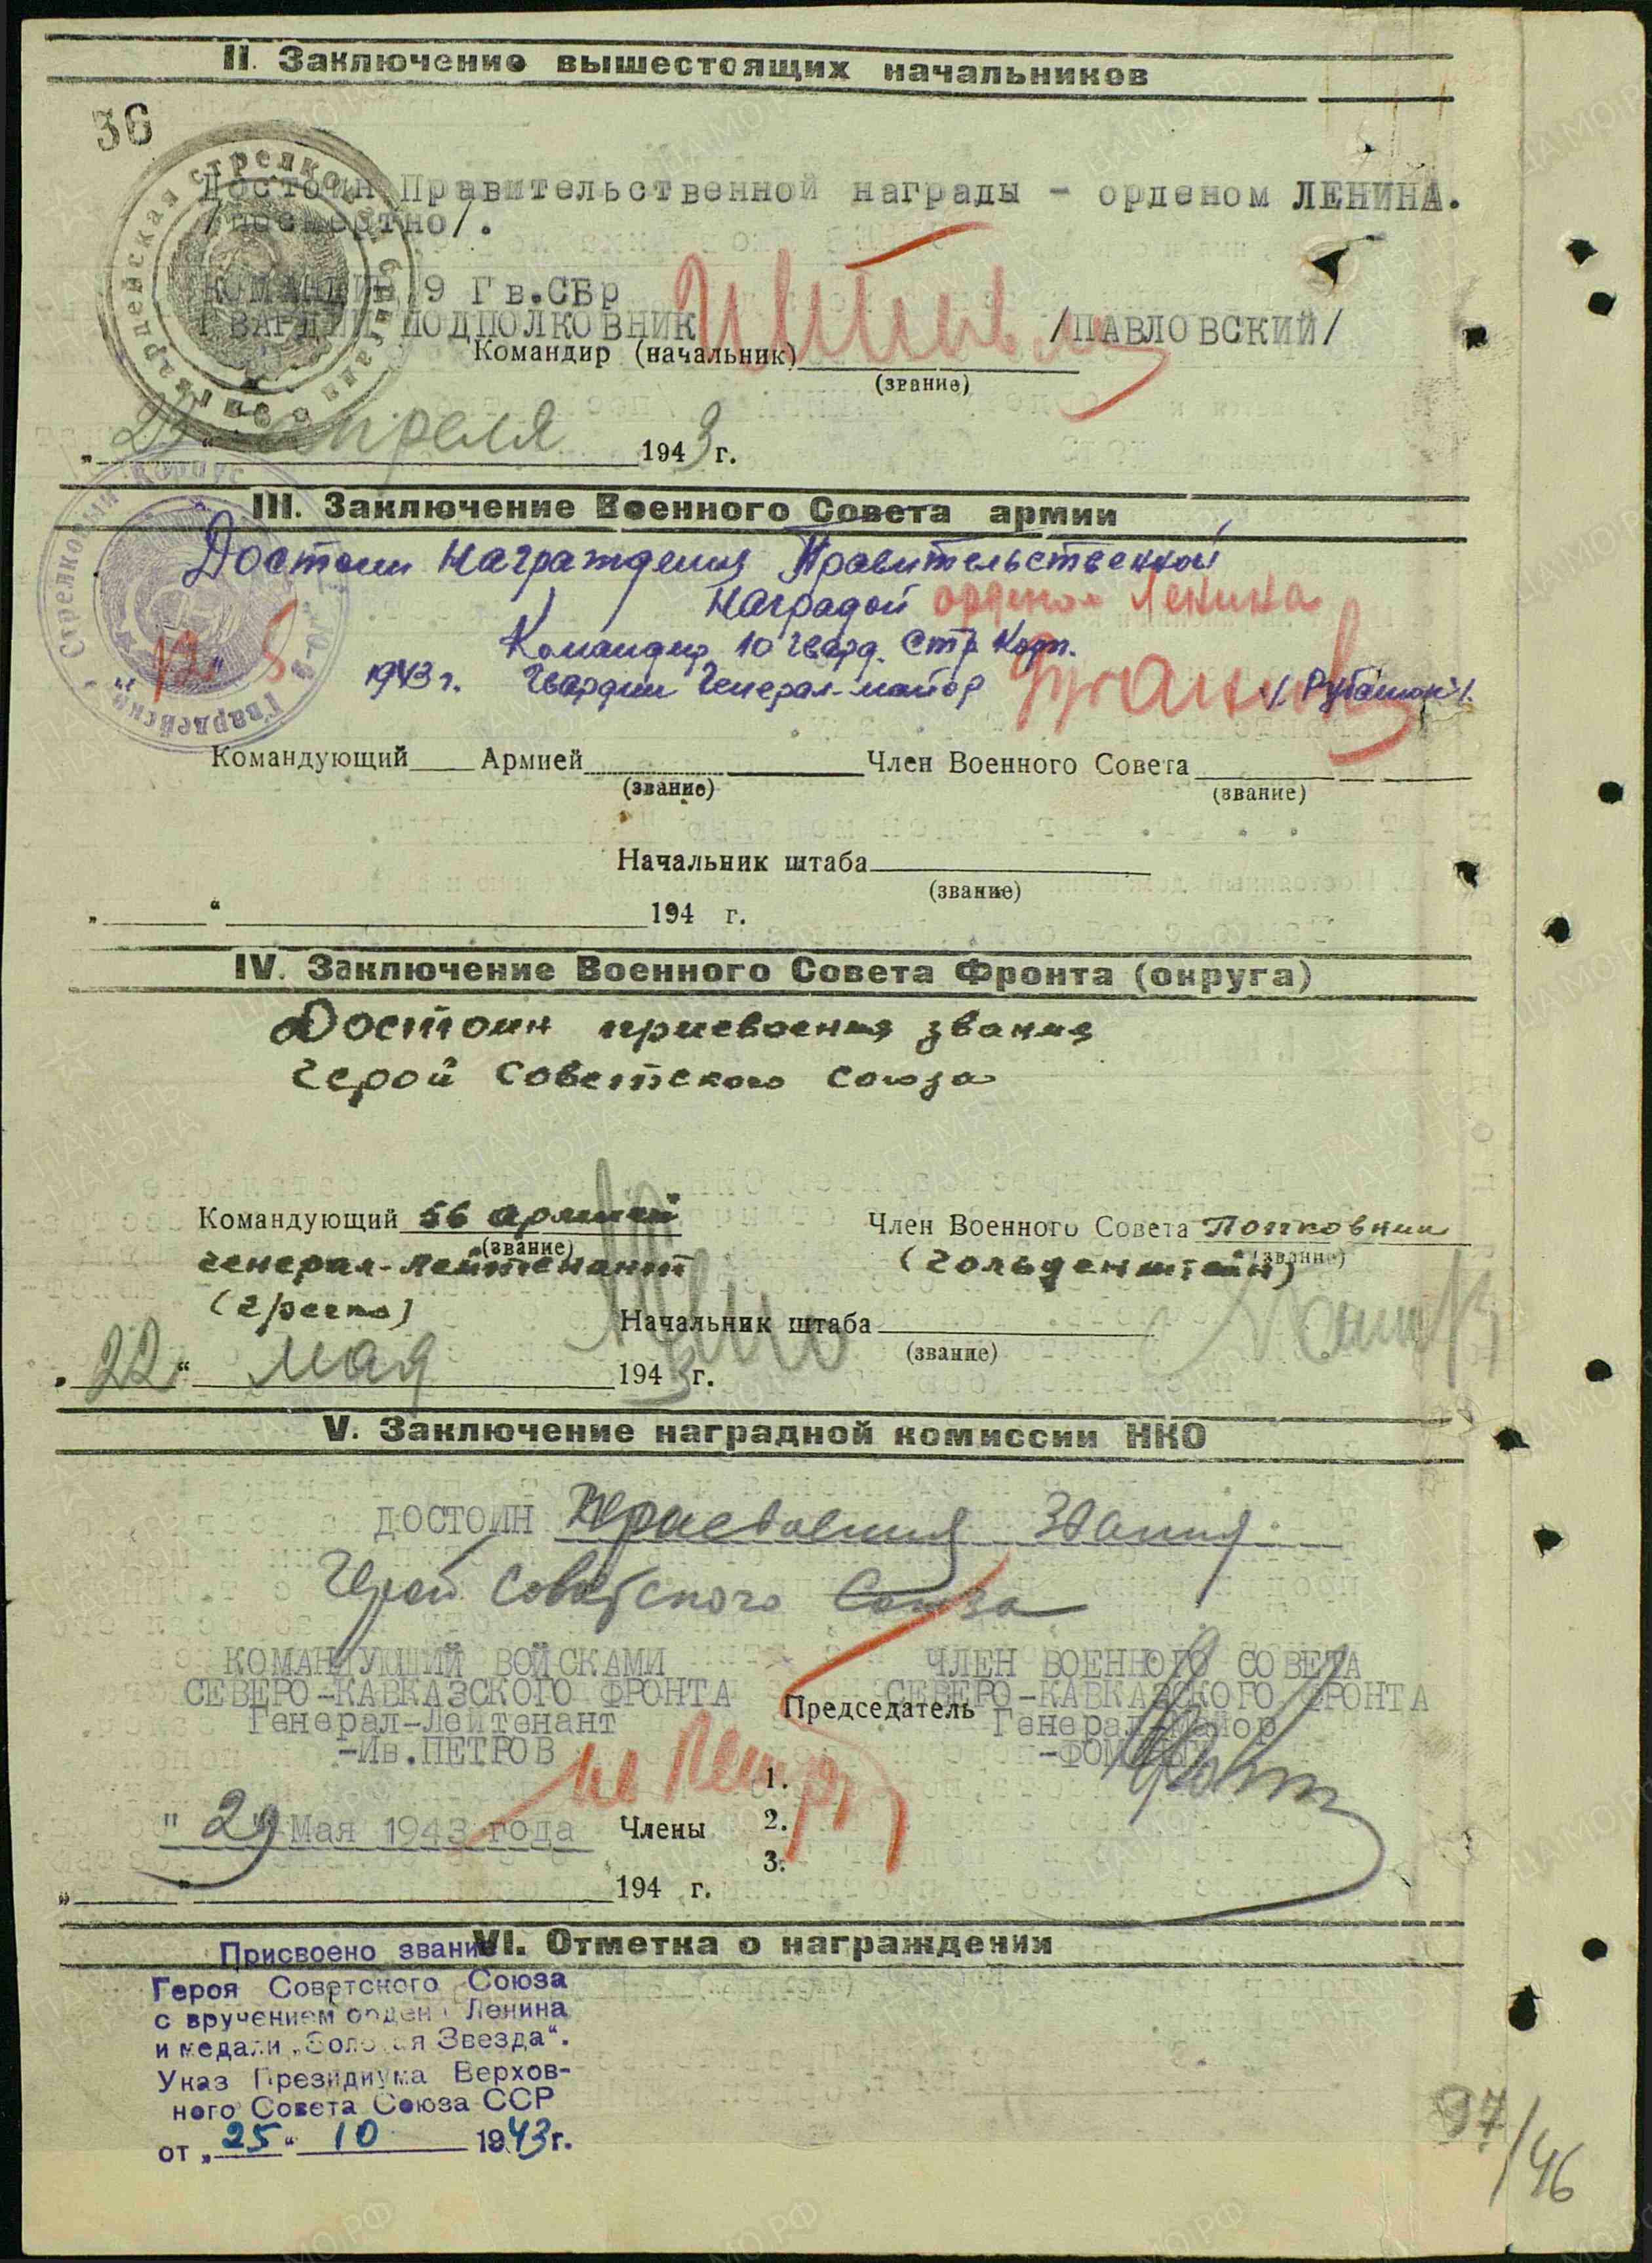 II. Заключение вышестоящих начальников
36
Достоин Правительственной награды - орденом ЛЕНИНА.
/посмертно/.
КОМАНДИР 9 Гв.СБр
ГВАРДИИ ПОДПОЛКОВНИК /ПАВЛОВСКИЙ/
Командир (начальник)
(звание)
апреля 1943 г.
III. Заключение Военного Совета армии
Достоин Награждения Правительственной
Наградой орденом Ленина
Командир 10 Гвард. Стр. Корп.
1943 г. Гвардии Генерал-майор /Рубанюк/.
Командующий Армией Член Военного Совета
(звание) (звание)
Начальник штаба
(звание)
„ “ 194 г.
IV. Заключение Военного Совета Фронта (округа)
Достоин присвоения звания
Герой Советского Союза
Командующий 56 Армией Член Военного Совета Полковник
(звание) (звание)
Генерал-Лейтенант (Гольденштейн)
(Гречко) Начальник штаба
(звание)
„22“ мая 1943 г.
V. Заключение наградной комиссии НКО
ДОСТОИН Присвоения Звания
Герой Советского Союза
КОМАНДУЮЩИЙ ВОЙСКАМИ ЧЛЕН ВОЕННОГО СОВЕТА
СЕВЕРО-КАВКАЗСКОГО ФРОНТА СЕВЕРО-КАВКАЗСКОГО ФРОНТА
Председатель
Генерал-Лейтенант Генерал-Майор
-Ив.ПЕТРОВ
1.
"29" Мая 1943 года Члены 2.
3.
„ “ 194 г.
VI. Отметка о награждении
Присвоено звание
Героя Советского Союза
с вручением ордена Ленина
и медали „Золотая Звезда“.
Указ Президиума Верхов-
ного Совета Союза ССР
от „25“ 10 1943 г.
97/46